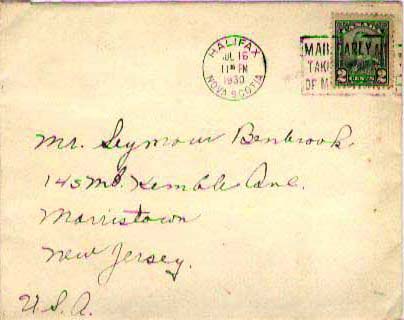 HALIFAX
JUL 16
11 PM
1930
NOVA SCOTIA
MAIL EARLY
TAK
OF M
2 CENTS 2
Mr. Seymour Benbrook.
145 Mt. Kemble Ave.
Morristown
New Jersey.
U.S.A.